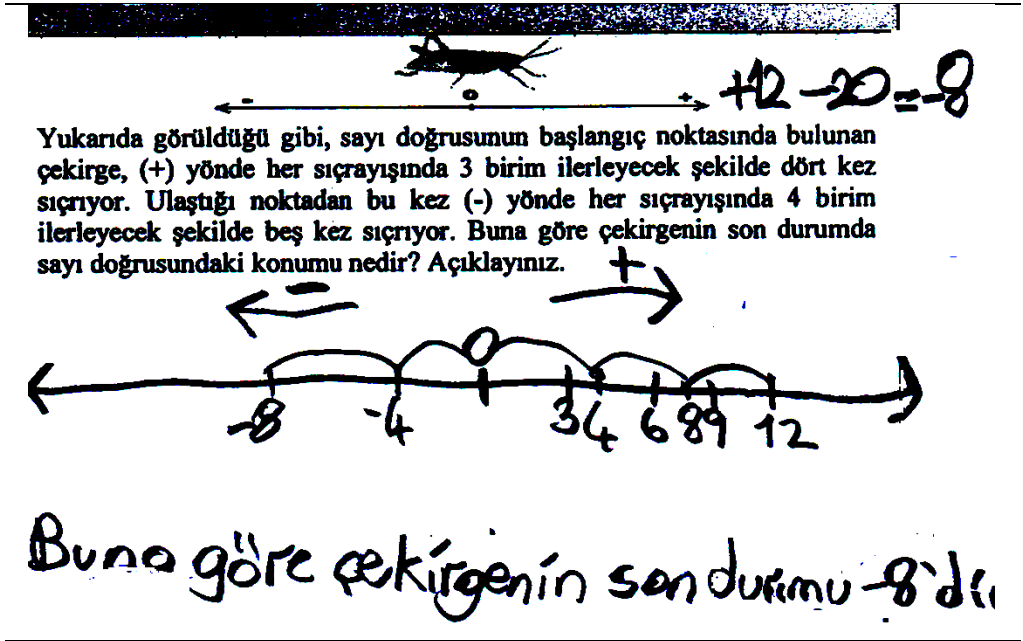 - 0 +
+12-20=-8
Yukarıda görüldüğü gibi, sayı doğrusunun başlangıç noktasında bulunan
çekirge, (+) yönde her sıçrayışında 3 birim ilerleyecek şekilde dört kez
sıçrıyor. Ulaştığı noktadan bu kez (-) yönde her sıçrayışında 4 birim
ilerleyecek şekilde beş kez sıçrıyor. Buna göre çekirgenin son durumda
sayı doğrusundaki konumu nedir? Açıklayınız.
- +
0
-8 -4 3 4 6 8 9 12
Buna göre çekirgenin son durumu -8'dir